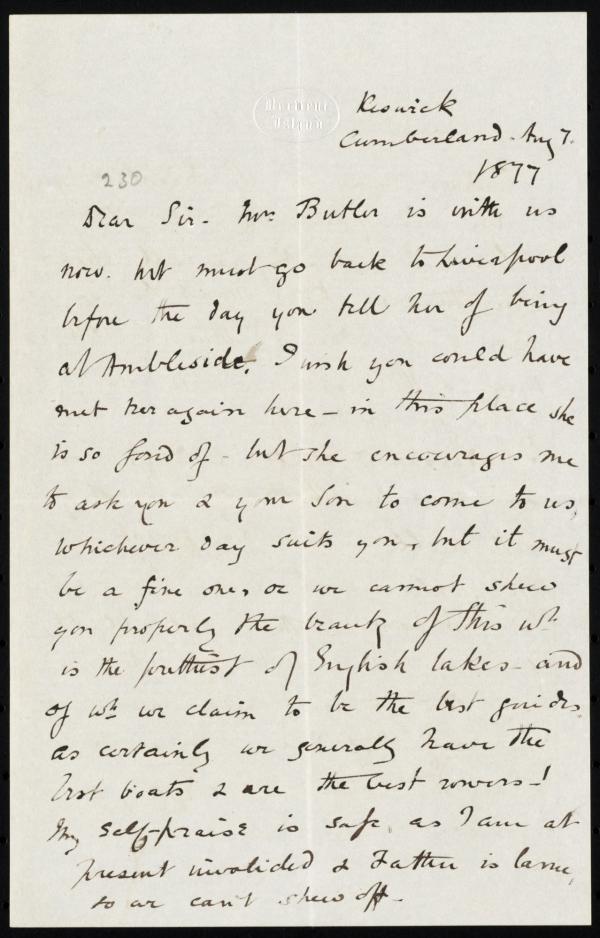 Derwent
Island
Keswick
Cumberland. Aug 7.
1877
230
Dear Sir - Mrs Butler is with us
now. but must go back to Liverpool
before the day you tell her of being
at Ambleside. I wish you could have
met her again here - in this place she
is so fond of - but she encourages me
to ask you & your Son to come to us,
whichever day suits you, but it must
be a fine one, or we cannot shew
you properly the beauty of this wh
is the prettiest of English lakes - and
of wh we claim to be the best guides
as certainly we generally have the
best boats & are the best rowers -!
My self-praise is safe as I am at
present invalided & Father is lame,
so we can't shew off -